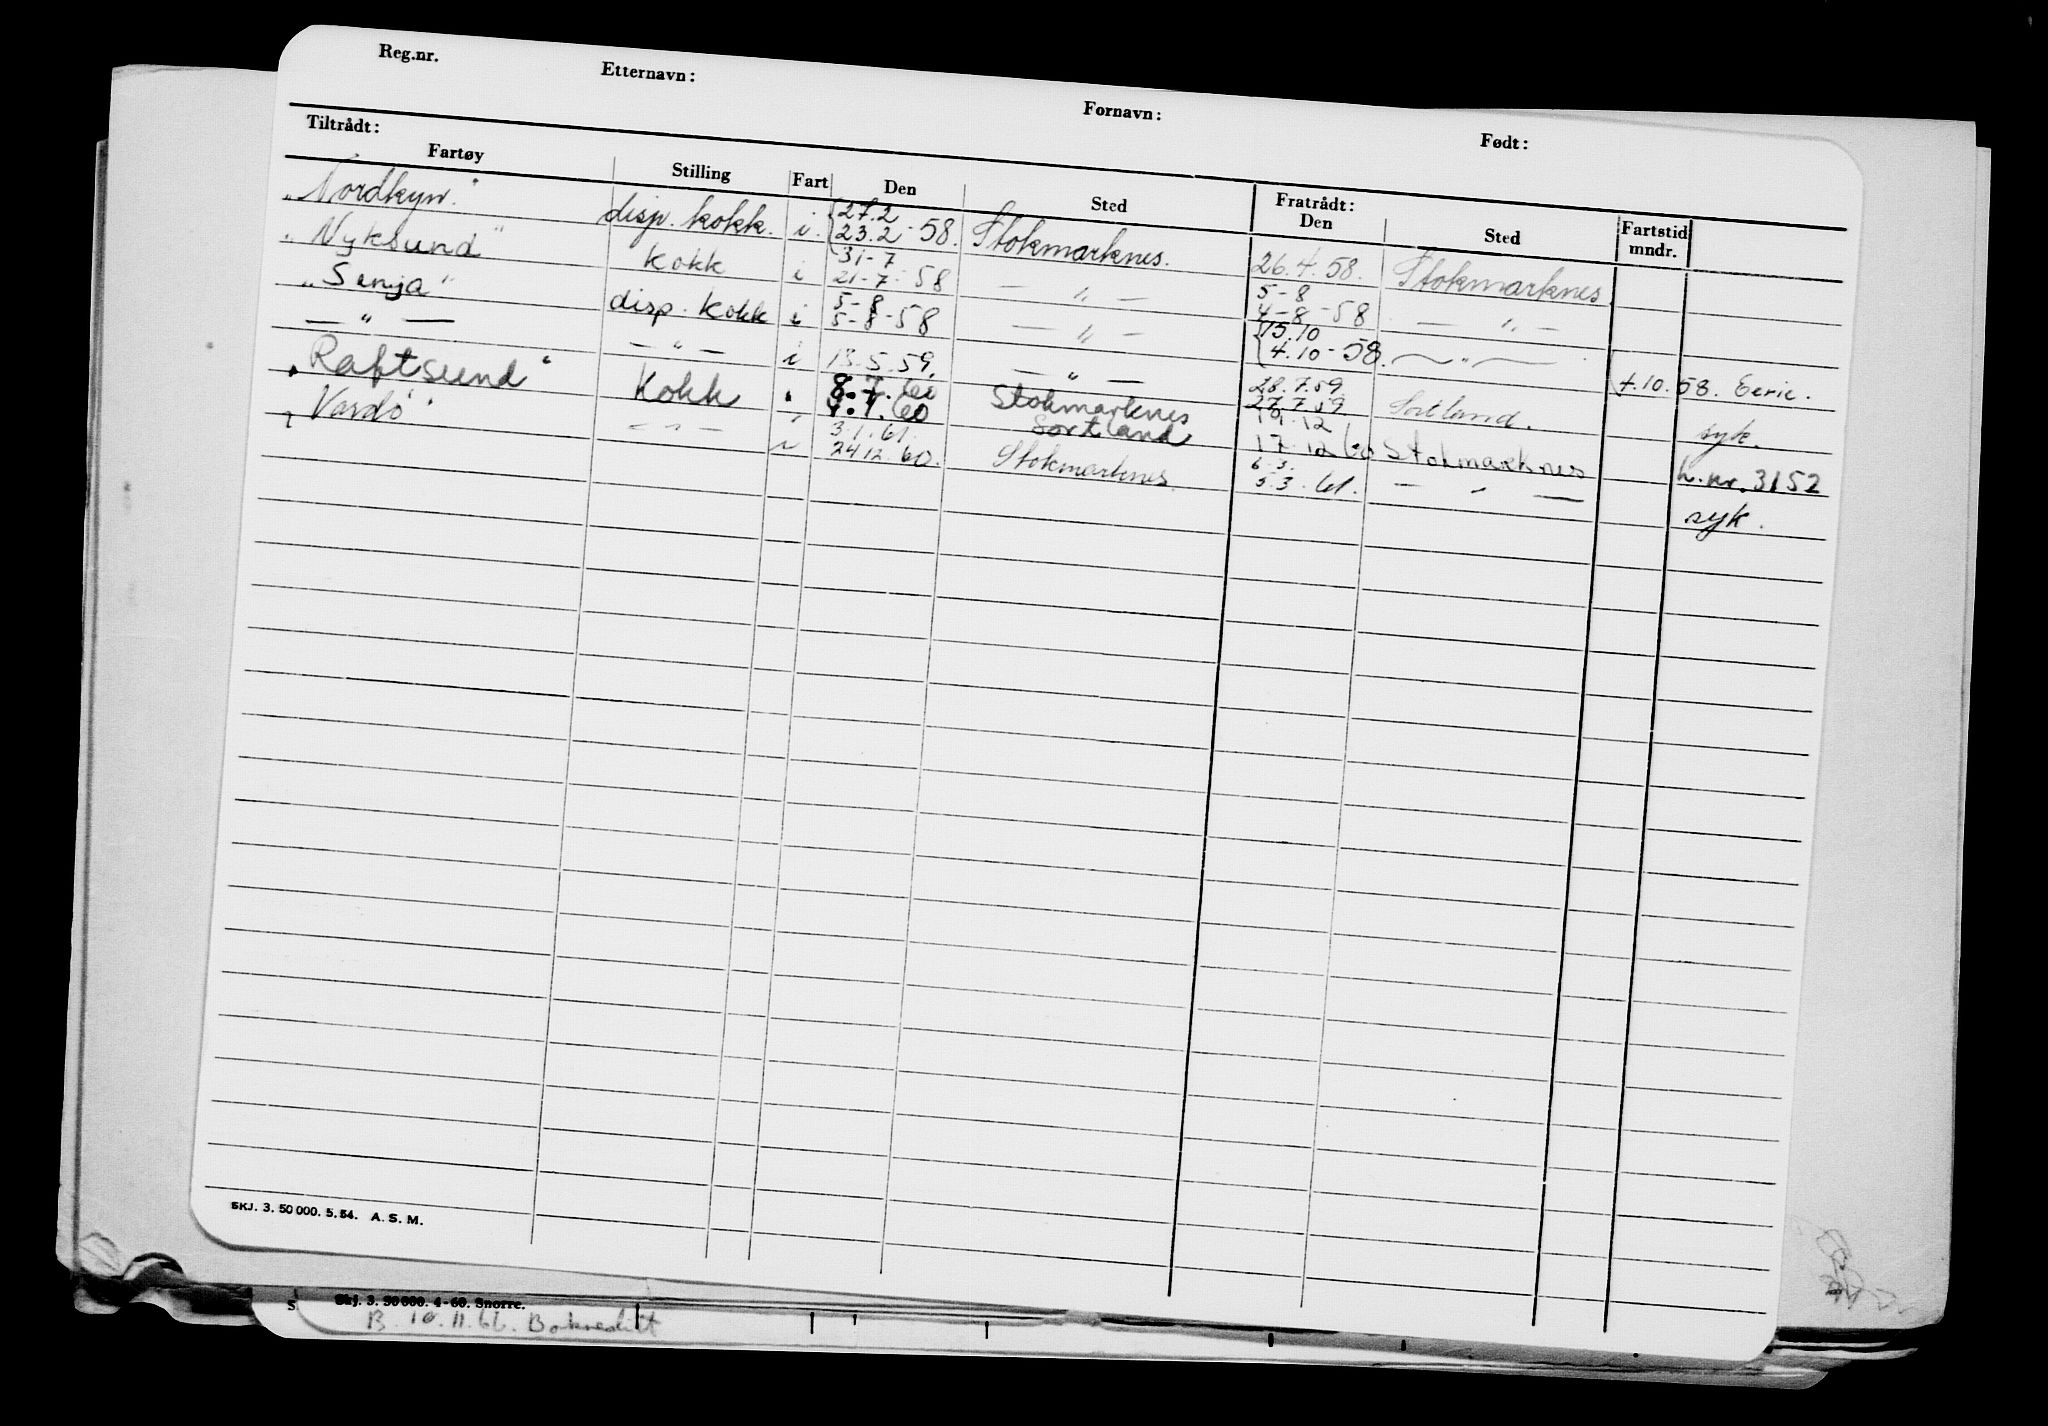 Reg.nr. Etternavn: Fornavn: Født:
Tiltrådt: Fratrådt:
Fartøy Stilling Fart Den Sted Den Sted Fartstid mndr.
"Nordkyn." disp. kokk. i. 27.2 23.2 - 58. Stokmarknes. 26.4.58. Stokmarknes
"Nyksund" kokk i 31-7 21-7-58 — " — 5-8 4-8-58 — " —
"Senja" disp. kokk i 5-8 5-8-58 — " — 15.10 4.10-58. — " —
— " — — " — i 13.5.59. — " — 28.7.59 27.7.59 Sortland. 4.10.58. syk.
"Raftsund" Kokk 8.7.60 Stokmarknes Sortland 17.12 60 Stokmarknes h.nr. 3152
"Vardö" — " — i 3.1.61. 24 12. 60. Stokmarknes 6.3. 5.3.61. — " — syk.
SKJ. 3. 50 000. 5. 54. A. S. M.
S Skj. 3. 50 000. 4-60. Snorre.
B. 10.11.66.